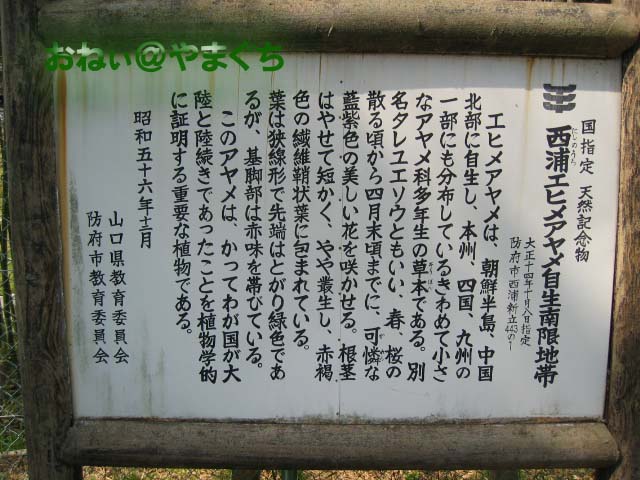 おねぃ@やまぐち
国指定 天然記念物
西浦エヒメアヤメ自生南限地帯
にしのうら
大正十四年十月八日指定
防府市西浦新立443の1
エヒメアヤメは、朝鮮半島、中国
北部に自生し、本州、四国、九州の
一部にも分布しているきわめて小さ
なアヤメ科多年生の草本である。別
名タレユエソウともいい、春、桜の
散る頃から四月末頃までに、可憐な
藍紫色の美しい花を咲かせる。根茎
はやせて短かく、やや叢生し、赤褐
色の繊維鞘状葉に包まれている。
葉は狭線形で先端はとがり緑色であ
るが、基脚部は赤味を帯びている。
このアヤメは、かってわが国が大
陸と陸続きであったことを植物学的
に証明する重要な植物である。
昭和五十六年十二月
山口県教育委員会
防府市教育委員会